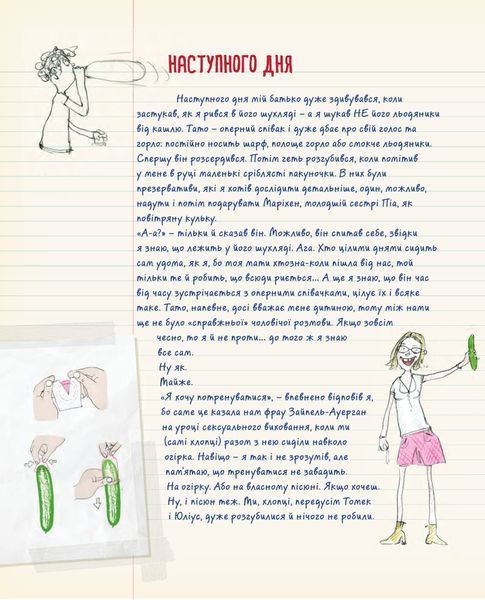 НАСТУПНОГО ДНЯ
Наступного дня мій батько дуже здивувався, коли
застукав, як я рився в його шухляді – а я шукав НЕ його льодяники
від кашлю. Тато – оперний співак і дуже дбає про свій голос та
горло: постійно носить шарф, полоще горло або смокче льодяники.
Спершу він розсердився. Потім геть розгубився, коли помітив
у мене в руці маленькі сріблясті пакуночки. В них були
презервативи, які я хотів дослідити детальніше, один, можливо,
надути і потім подарувати Маріхен, молодшій сестрі Піа, як
повітряну кульку.
«А-а?» – тільки й сказав він. Можливо, він спитав себе, звідки
я знаю, що лежить у його шухляді. Ага. Хто цілими днями сидить
сам удома, як я, бо моя мати хтозна-коли пішла від нас, той
тільки те й робить, що всюди риється... А ще я знаю, що він час
від часу зустрічається з оперними співачками, цілує їх і всяке
таке. Тато, напевне, досі вважає мене дитиною, тому між нами
ще не було «справжньої» чоловічої розмови. Якщо зовсім
чесно, то я й не проти... до того ж я знаю
все сам.
Ну як.
Майже.
«Я хочу потренуватися», – впевнено відповів я,
бо саме це казала нам фрау Зайпель-Ауерган
на уроці сексуального виховання, коли ми
(самі хлопці) разом з нею сиділи навколо
огірка. Навіщо – я так і не зрозумів, але
пам'ятаю, що тренуватися не завадить.
На огірку. Або на власному пісюні. Якщо хочеш.
Ну, і пісюн теж. Ми, хлопці, передусім Томек
і Юліус, дуже розгубилися й нічого не робили.